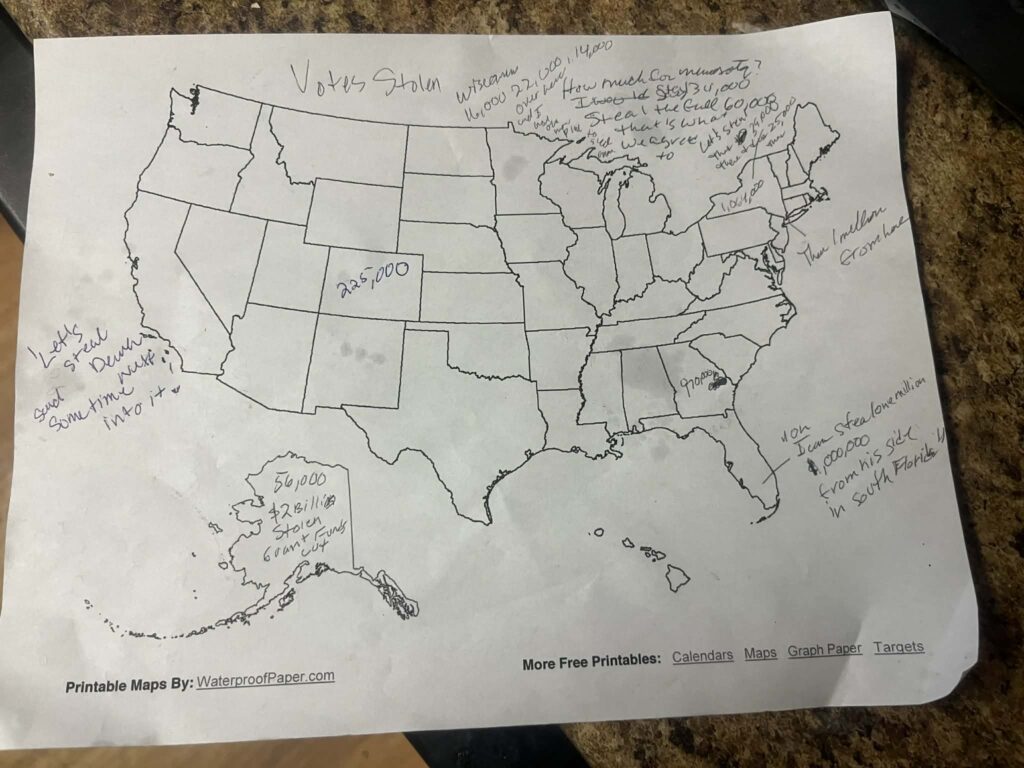 Votes Stolen
Wisconsin
16,000 22,000, 14,000
over here
and I
How much for
34,000
Steal the full 60,000
that's what
we agree
to
Let's steal
25,000
1,064,000
Than 1 million
from here
225,000
"Let's
steal
and
Sometime must
into it"
970,000
I can steal over million
1,000,000
from his side
in South Florida"
56,000
$2 Billion
Stolen
Grant Funds
Cut
More Free Printables: Calendars Maps Graph Paper Targets
Printable Maps By: WaterproofPaper.com